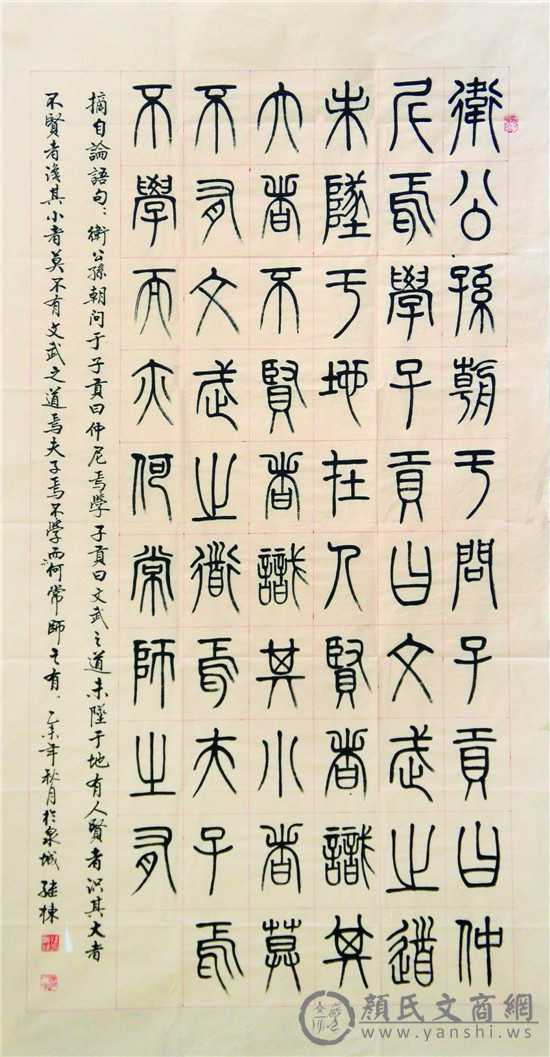 衛公孫朝于問子貢曰仲
尼焉學子貢曰文武之道
未墜于地在人賢者識其
大者不賢者識其小者莫
不有文武之道焉夫子焉
不學而亦何常師之有
摘自論語句：衛公孫朝问于子貢曰仲尼焉學子貢曰文武之道未墜于地有人賢者识其大者
不賢者识其小者莫不有文武之道焉夫子焉不學而何常師之有．乙未年秋月於泉城
顏氏文商網
www.yanshi.ws